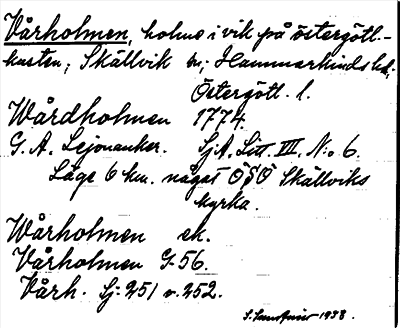 Vårholmen, holme i vik på östergötl.-
kusten; Skällvik sn; Hammarkinds hd;
Östergötl. l.
Wårdholmen 1774.
G. A. Lejonanker. Sj.A. Litt. III. N:o 6.
Läge 6 km. något ÖSÖ Skällviks
kyrka.
Wårholmen ek.
Vårholmen G-56.
Vårh. Sj. 251 o. 252.
1938.